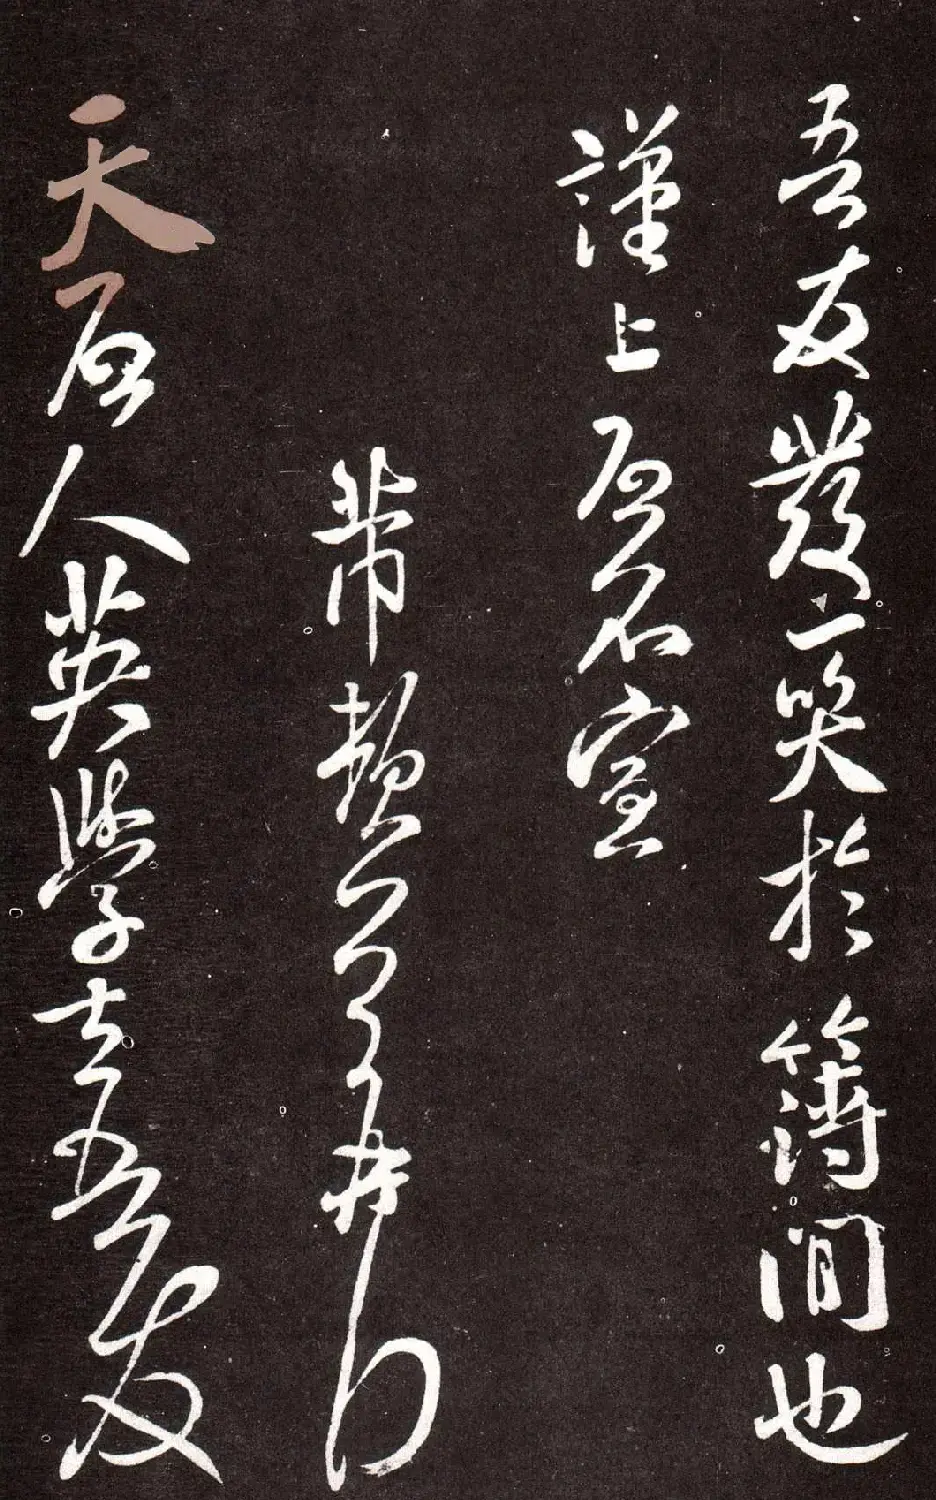 吾友發一笑於簿間也
謹上启不宣
芾頓首再拜
天启人英學士吾友